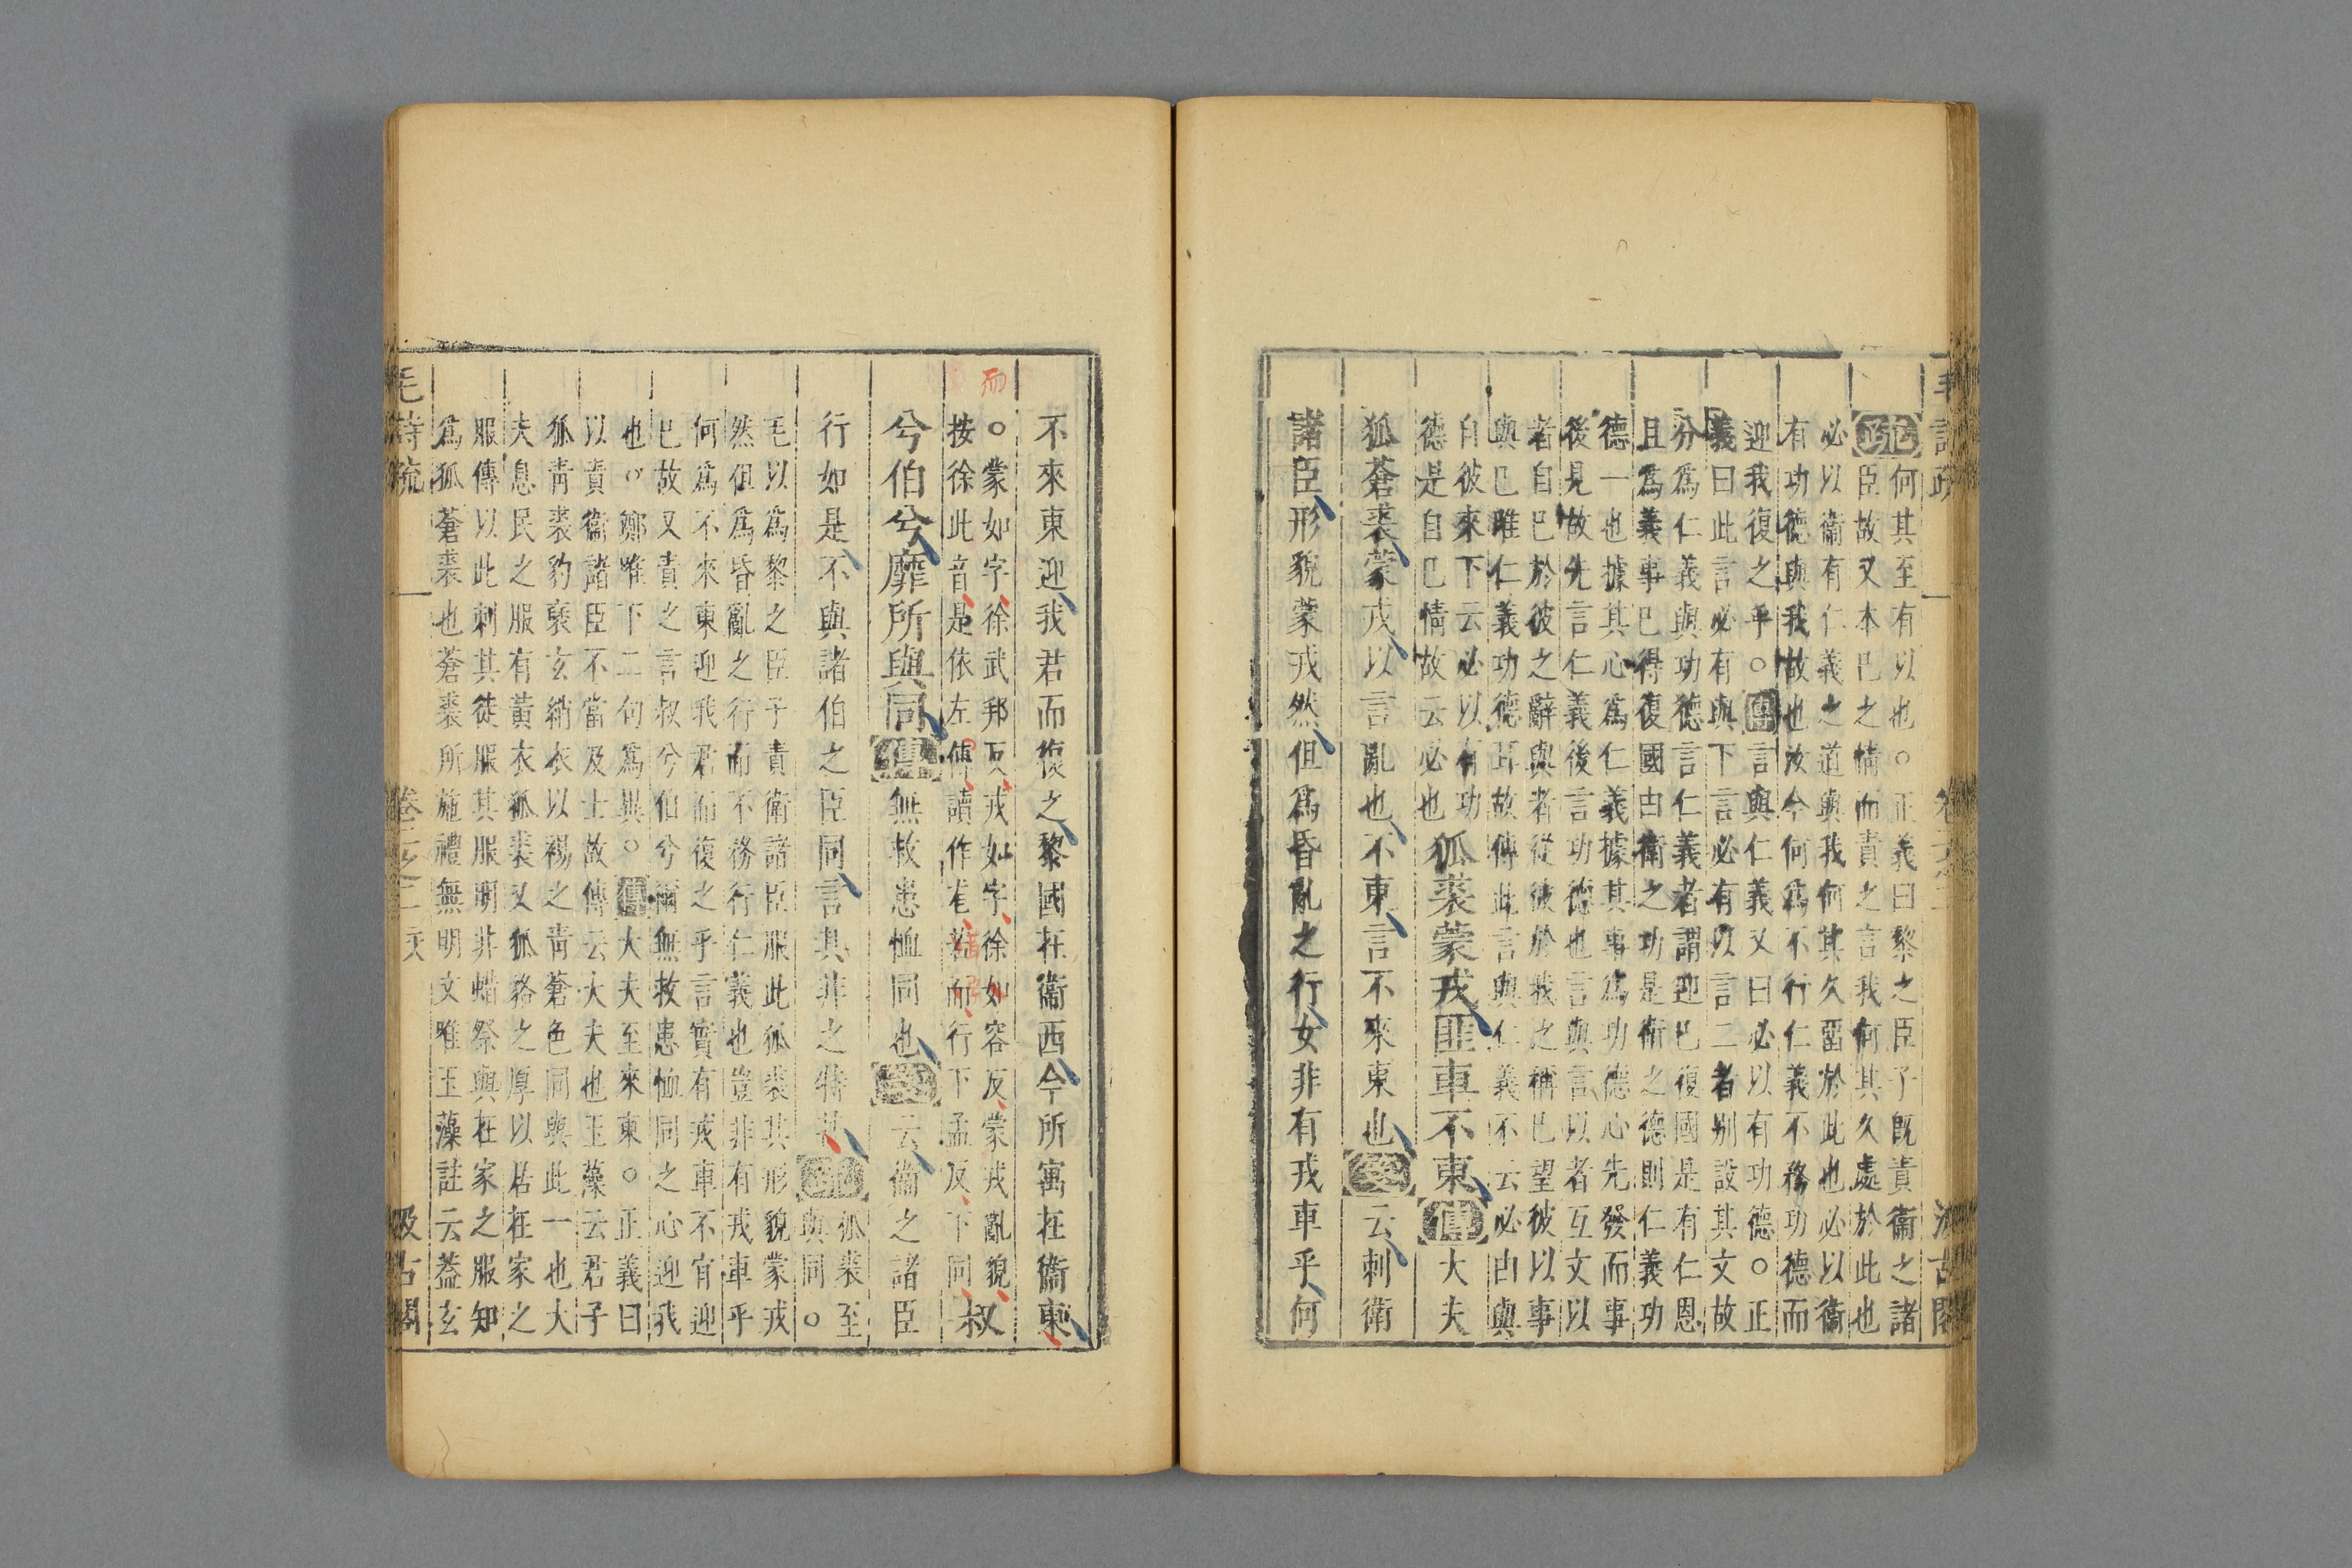 毛詩疏 卷二之二 汲古閣
疏何其至有以也。正義曰黎之臣子旣責衞之諸
臣故又本巳之情而責之言我何其久處於此也
必以衞有仁義之道與我何其久畱於此也必以衞
有功德與我故也汝今何爲不行仁義不務功德而
迎我復之乎。傳言與仁義又曰必以有功德。正
義曰此言必有與下言必有以言二者别設其文故
分爲仁義與功德言仁義者謂迎巳復國是有仁恩
且爲義事巳得復國由衞之功是衞之德則仁義功
德一也據其心爲仁義據其事爲功德心先發而事
後見故先言仁義後言功德也言與言以者互文以
者自巳於彼之辭與者從彼於我之稱巳望彼以事
與巳唯仁義功德耳故傳此言與仁義不云必由與
自彼來下云必以有功
德是自巳情故云必也
狐裘蒙戎匪車不東傳大夫
狐蒼裘蒙戎以言亂也不東言不來東也箋云刺衞
諸臣形貌蒙戎然但爲昏亂之行女非有戎車乎何
不來東迎我君而復之黎國在衞西今所寓在衞東
而
。蒙如字徐武邦反戎如字徐如容反蒙戎亂貌
按徐此音是依左傳讀作尨茸而行下孟反下同
叔
兮伯兮靡所與同傳無救患恤同也箋云衞之諸臣
行如是不與諸伯之臣同言其非之特甚疏
狐裘至
與同。
毛以爲黎之臣子責衞諸臣服此狐裘其形貌蒙戎
然但爲昏亂之行而不務行仁義也豈非有戎車乎
何爲不來東迎我君而復之乎言實有戎車不肯迎
巳故又責之言叔兮伯兮爾無救患恤同之心迎我
也。鄭唯下二句爲異。傳大夫至來東。正義曰
以責衞諸臣不當及士故傳云大夫也玉藻云君子
狐靑裘豹褎玄綃衣以裼之靑蒼色同與此一也大
夫息民之服有黃衣狐裘又狐貉之厚以居在家之
服傳以此刺其徒服其服明非蜡祭與在家之服知
爲狐蒼裘也蒼裘所施禮無明文唯玉藻註云蓋玄
毛詩疏 卷二之二 汲古閣